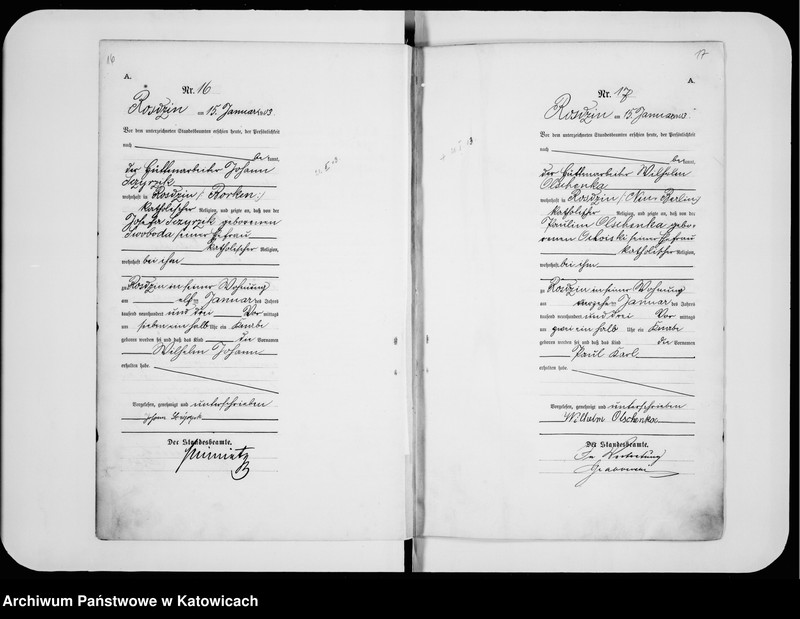 16
A.
Nr. 16
Rosdzin am 15. Januar 1903
Vor dem unterzeichneten Standesbeamten erschien heute, der Persönlichkeit
nach
be kannt,
der Hüttenarbeiter Johann
Szyrzyk
wohnhaft in Rosdzin (Borken)
katholischer Religion, und zeigte an, daß von der
geborenen
Swoboda seiner Ehefrau
katholischer Religion,
wohnhaft bei ihm
zu Rosdzin in seiner Wohnung
am elf ten Januar des Jahres
tausend neunhundert und drei Vor mittags
um sieben ein halb Uhr ein Knabe
geboren worden sei und daß das Kind die Vornamen
Wilhelm Johann
erhalten habe.
Vorgelesen, genehmigt und unterschrieben
Johann
Der Standesbeamte.
17
A.
Nr. 17
Rosdzin am 15. Januar 1903
Vor dem unterzeichneten Standesbeamten erschien heute, der Persönlichkeit
nach
be kannt,
der Hüttenarbeiter Wilhelm
Olschenka
wohnhaft in Rosdzin (Neu-Berlin)
katholischer Religion, und zeigte an, daß von der
Paulin Olschenka gebo-
renen seiner Ehefrau
katholischer Religion,
wohnhaft bei ihm
zu Rosdzin in seiner Wohnung
am Januar des Jahres
tausend neunhundert und drei Vor mittags
um zwei ein halb Uhr ein Knabe
geboren worden sei und daß das Kind die Vornamen
Paul Karl
erhalten habe.
Vorgelesen, genehmigt und unterschrieben
Wilhelm Olschenka
Der Standesbeamte.
In Vertretung
Archiwum Państwowe w Katowicach